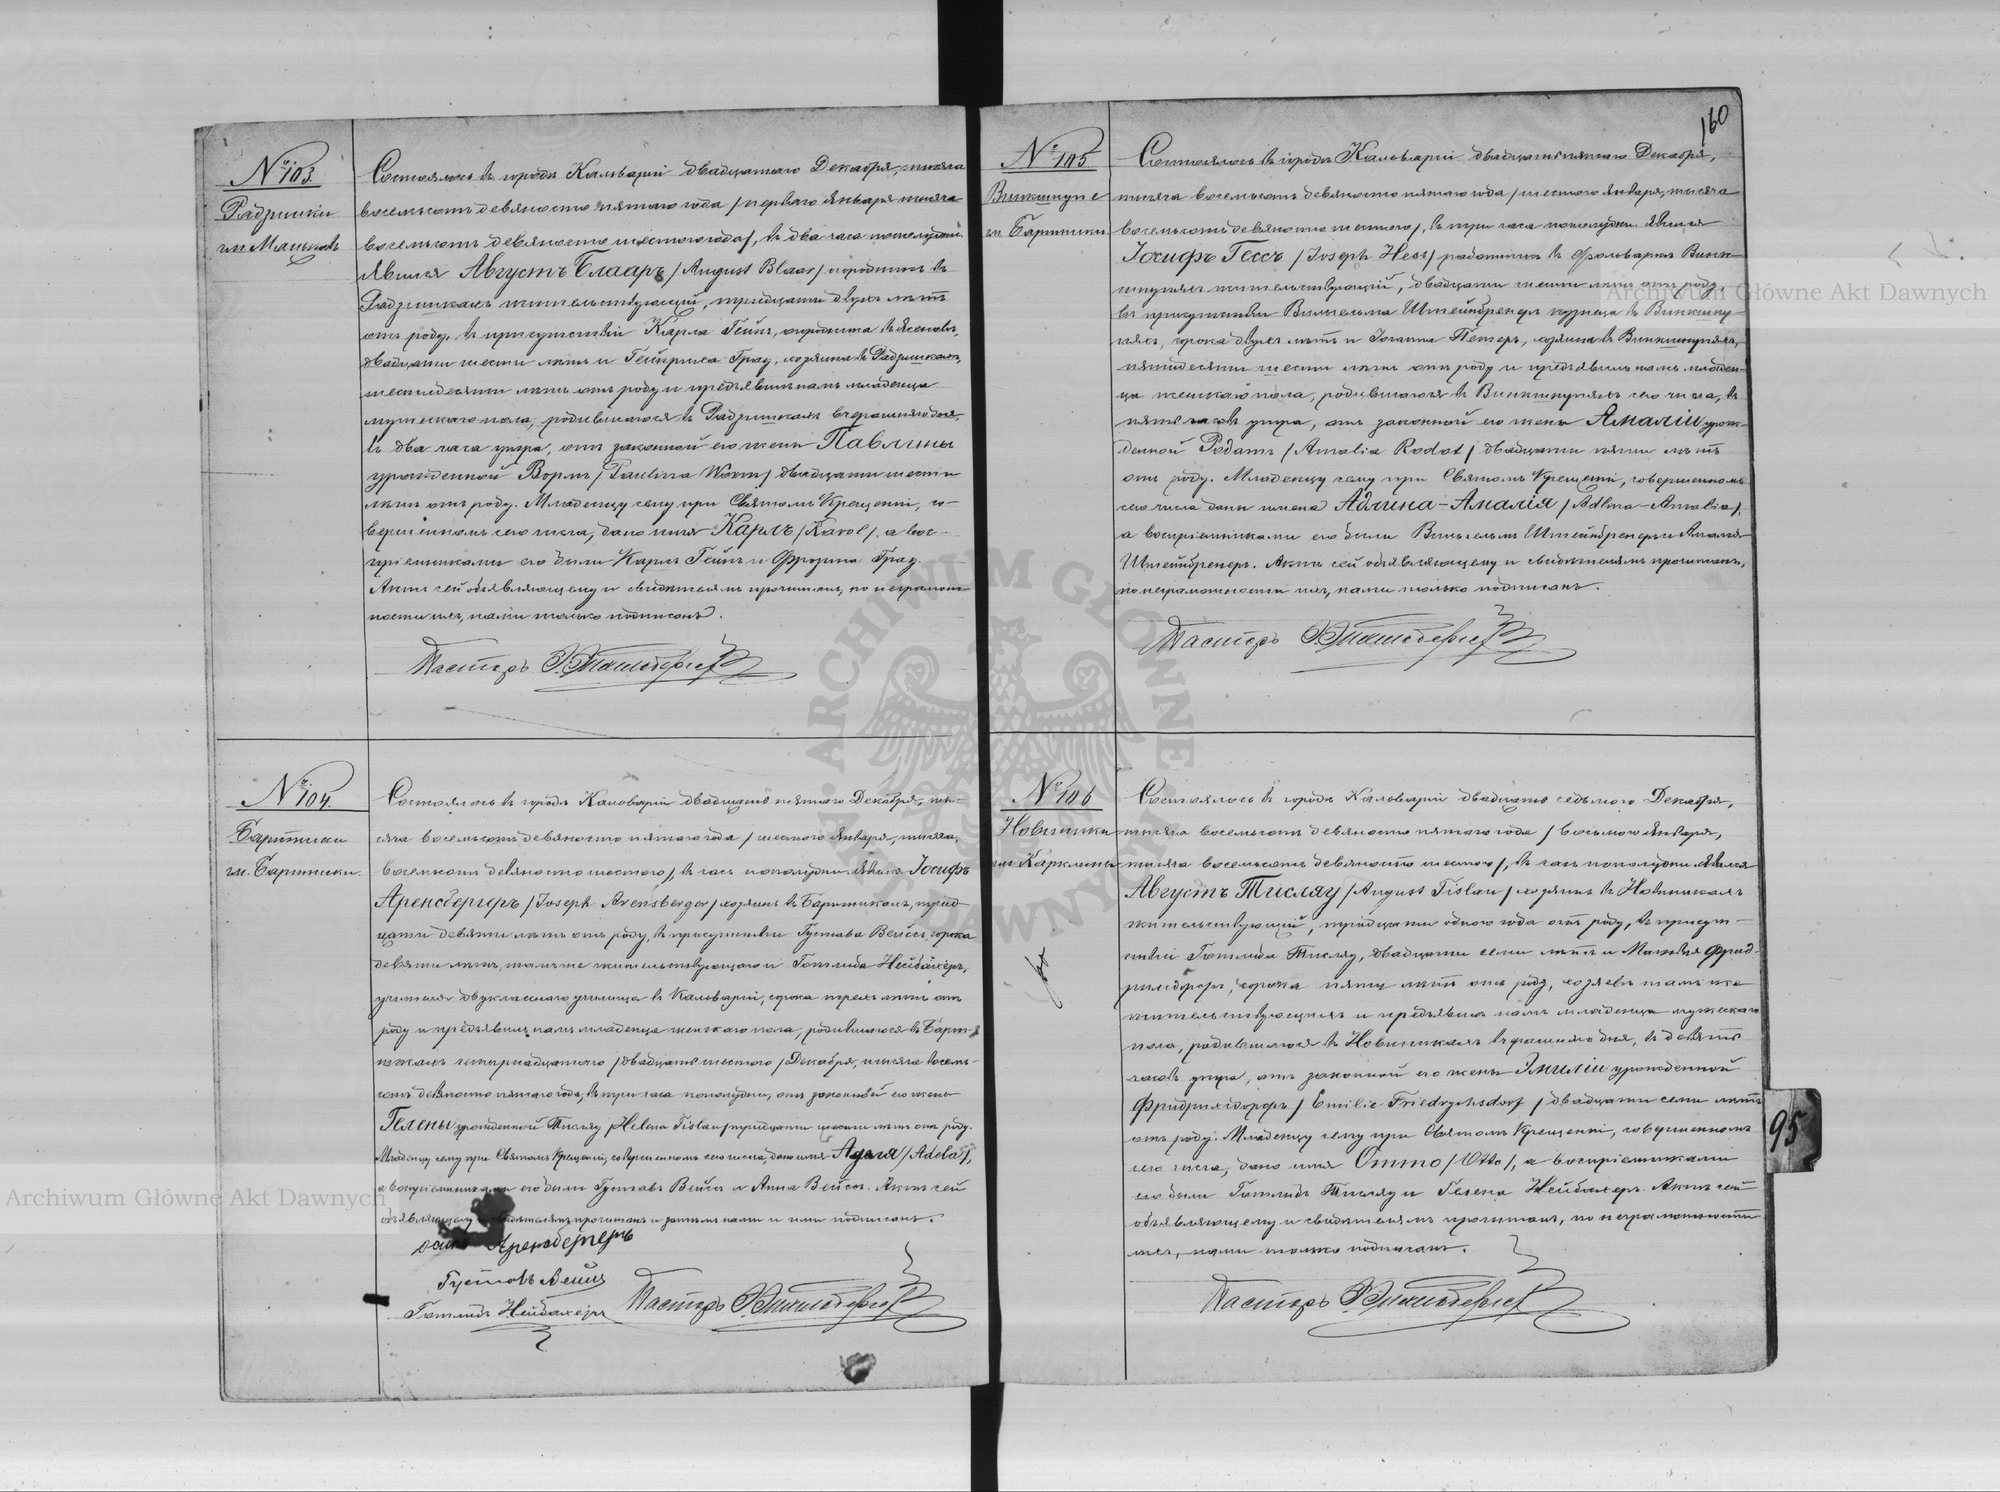 № 103.
Радзишки
гм. Мацковъ
Состоялось въ городѣ Кальваріи двадцатаго Декабря, тысяча
восемьсотъ девяносто пятаго года /перваго Января тысяча
восемьсотъ девяносто шестого года/, въ два часа пополудни.
Явился Августъ Блааръ /August Blaar/ огородникъ въ
Радзишкахъ жительствующій, тридцати двухъ лѣтъ
отъ роду, въ присутствіи Карла Гейнъ, огородника въ
двадцати шести лѣтъ и Гейнриха Градъ, хозяина въ Радзишкахъ,
шестидесяти лѣтъ отъ роду и предъявилъ намъ младенца
мужескаго пола, родившагося въ Радзишкахъ вчерашняго дня,
въ два часа утра, отъ законной его жены Павлины
урожденной Вормъ /Paulina Worm/ двадцати шести
лѣтъ отъ роду. Младенцу сему при Святомъ Крещеніи, со-
вершенномъ сего числа, дано имя Карлъ /Karol/, а вос-
пріемниками его были Карлъ Гейнъ и Фрозина Градъ.
Актъ сей объявляющему и свидѣтелямъ прочитанъ, по неграмот-
ности ихъ, нами только подписанъ.
Пасторъ
№ 104.
Бартники
гм. Бартники.
Состоялось въ городѣ Кальваріи двадцать пятаго Декабря, ты-
сяча восемьсотъ девяносто пятаго года /шестого Января, тысяча
восемьсотъ девяносто шестого/, въ часъ пополудни. Явился Іосифъ
Аренсбергеръ /Joseph Arensberger/ хозяинъ въ Бартникахъ, трид-
цати девяти лѣтъ отъ роду, въ присутствіи Густава Вейсъ, сорока
девяти лѣтъ, тамъ же жительствующаго и Готлиба Нейбахеръ,
учителя двукласснаго училища въ Кальваріи, сорока трехъ лѣтъ отъ
роду и предъявилъ намъ младенца женскаго пола, родившагося въ Барт-
никахъ четырнадцатаго /двадцать шестого/ Декабря, тысяча восемь-
сотъ девяносто пятаго года, въ три часа пополудни, отъ законной его жены
Гелены урожденной Тисляу /Helena Tislau/ тридцати шести лѣтъ отъ роду.
Младенцу сему при Святомъ Крещеніи, совершенномъ сего числа, дано имя Аделя /Adela/,
а воспріемниками его были Густавъ Вейсъ и Анна Вейсъ. Актъ сей
объявляющему и свидѣтелямъ прочитанъ и затѣмъ нами и ими подписанъ.
Аренсбергеръ
Густавъ Вейсъ
Готлибъ Нейбахеръ Пасторъ
160
№ 105
Винкшнупе
гм. Бартники
Состоялось въ городѣ Кальваріи двадцать пятаго Декабря,
тысяча восемьсотъ девяносто пятаго года /шестого Января, тысяча
восемьсотъ девяносто шестого/, въ три часа пополудни. Явился
Іосифъ Гессъ /Joseph Hess/ работникъ въ фольваркѣ Винк-
шнупяхъ жительствующій, двадцати шести лѣтъ отъ роду,
въ присутствіи Вильгельма Штейнбренеръ кузнеца въ Винкшну-
пяхъ, сорока двухъ лѣтъ и Іоганна Петеръ, хозяина въ Винкшнупяхъ,
пятидесяти шести лѣтъ отъ роду и предъявилъ намъ младен-
ца женскаго пола, родившагося въ Винкшнупяхъ сего числа, въ
пять часовъ утра, отъ законной его жены Амаліи урож-
денной Родатъ /Amalia Rodat/ двадцати пяти лѣтъ
отъ роду. Младенцу сему при Святомъ Крещеніи, совершенномъ
сего числа даны имена Адлина-Амалія /Adlina-Amalia/,
а воспріемниками его были Вильгельмъ Штейнбренеръ и Амалія
Штейнбренеръ. Актъ сей объявляющему и свидѣтелямъ прочитанъ,
по неграмотности ихъ, нами только подписанъ.
Пасторъ
№ 106
Новиники
гм. Карклины
Состоялось въ городѣ Кальваріи двадцать седьмого Декабря,
тысяча восемьсотъ девяносто пятаго года /восьмого Января,
тысяча восемьсотъ девяносто шестого/, въ часъ пополудни. Явился
Августъ Тисляу /August Tislau/ хозяинъ въ Новиникахъ
жительствующій, тридцати одного года отъ роду, въ присут-
ствіи Готлиба Тисляу, двадцати семи лѣтъ и Матвѣя Фрид-
рихсдорфъ, сорока пяти лѣтъ отъ роду, хозяевъ тамъ же
жительствующихъ и предъявилъ намъ младенца мужескаго
пола, родившагося въ Новиникахъ вчерашняго дня, въ девять
часовъ утра, отъ законной его жены Эмиліи урожденной
Фридрихсдорфъ /Emilie Friedrychsdorf/ двадцати семи лѣтъ
отъ роду. Младенцу сему при Святомъ Крещеніи, совершенномъ
сего числа, дано имя Отто /Otto/, а воспріемниками
его были Готлибъ Тисляу и Гелена Нейбахеръ. Актъ сей
объявляющему и свидѣтелямъ прочитанъ, по неграмотности
ихъ, нами только подписанъ.
Пасторъ
95
Archiwum Główne Akt Dawnych
Archiwum Główne Akt Dawnych
ARCHIWUM GŁÓWNE AKT DAWNYCH